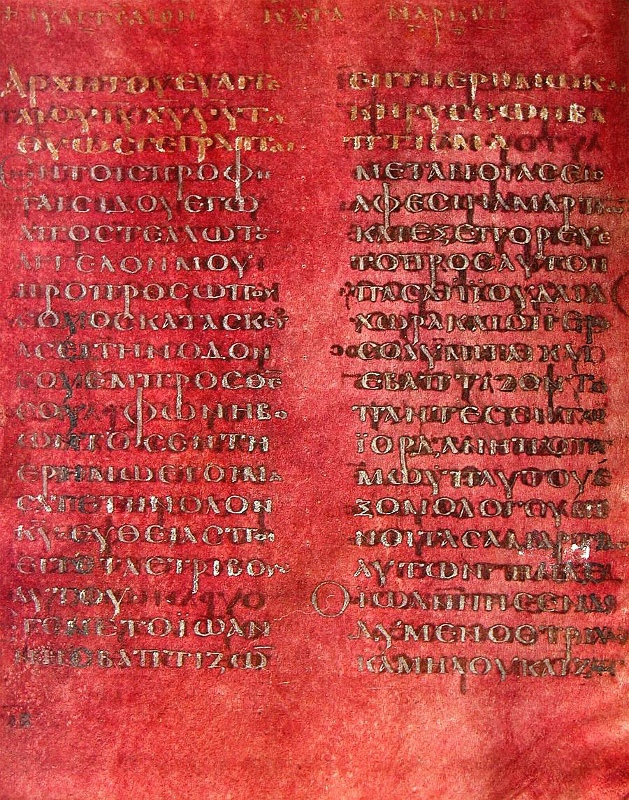 ΕΥΑΓΓΕΛΙΟΝ ΚΑΤΑ ΜΑΡΚΟΝ
ΑΡΧΗΤΟΥΕΥΑΓΓΕ
ΛΙΟΥΙ̅Υ̅Χ̅Υ̅Υ̅Υ̅ΤΟΥ
Θ̅Υ̅ΩϹΓΕΓΡΑΠΤΑΙ
ΕΝΤΟΙϹΠΡΟΦΗ
ΤΑΙϹΙΔΟΥΕΓΩ
ΑΠΟϹΤΕΛΛΩΤΟ̅
ΑΓΓΕΛΟΝΜΟΥ
ΠΡΟΠΡΟϹΩΠΟΥ
ϹΟΥΟϹΚΑΤΑϹΚΕΥ
ΑϹΕΙΤΗΝΟΔΟΝ
ϹΟΥΕΜΠΡΟϹΘΕ̅
ϹΟΥΦΩΝΗΒΟ
ΩΝΤΟϹΕΝΤΗ
ΕΡΗΜΩΕΤΟΙΜΑ
ϹΑΤΕΤΗΝΟΔΟΝ
Κ̅Υ̅ΕΥΘΕΙΑϹΠΟΙ
ΕΙΤΕΤΑϹΤΡΙΒΟΥϹ
ΑΥΤΟΥ
ΕΓΕΝΕΤΟΙΩΑΝ
ΝΗϹΒΑΠΤΙΖΩ̅
ΕΝΤΗΕΡΗΜΩΚΑΙ
ΚΗΡΥϹϹΩΝΒΑ
ΠΤΙϹΜΑ
ΜΕΤΑΝΟΙΑϹΕΙϹ
ΑΦΕϹΙΝΑΜΑΡΤΙΩ̅
ΚΑΙΕΞΕΠΟΡΕΥΕ
ΤΟΠΡΟϹΑΥΤΟΝ
ΠΑϹΑΗΙΟΥΔΑΙΑ
ΧΩΡΑΚΑΙΟΙΙΕΡΟ
ϹΟΛΥΜΙΤΑΙΚΑΙ
ΕΒΑΠΤΙΖΟΝΤΟ
ΠΑΝΤΕϹΕΝΤΩ
ΪΟΡΔΑΝΗΠΟΤΑ
ΜΩΥΠΑΥΤΟΥΕ
ΞΟΜΟΛΟΓΟΥΜΕ
ΝΟΙΤΑϹΑΜΑΡΤΙΑϹ
ΑΥΤΩΝ
ΟΙΩΑΝΝΗϹΕΝΔΕ
ΔΥΜΕΝΟϹΤΡΙΧΑϹ
ΚΑΜΗΛΟΥΚΑΙΖΩ